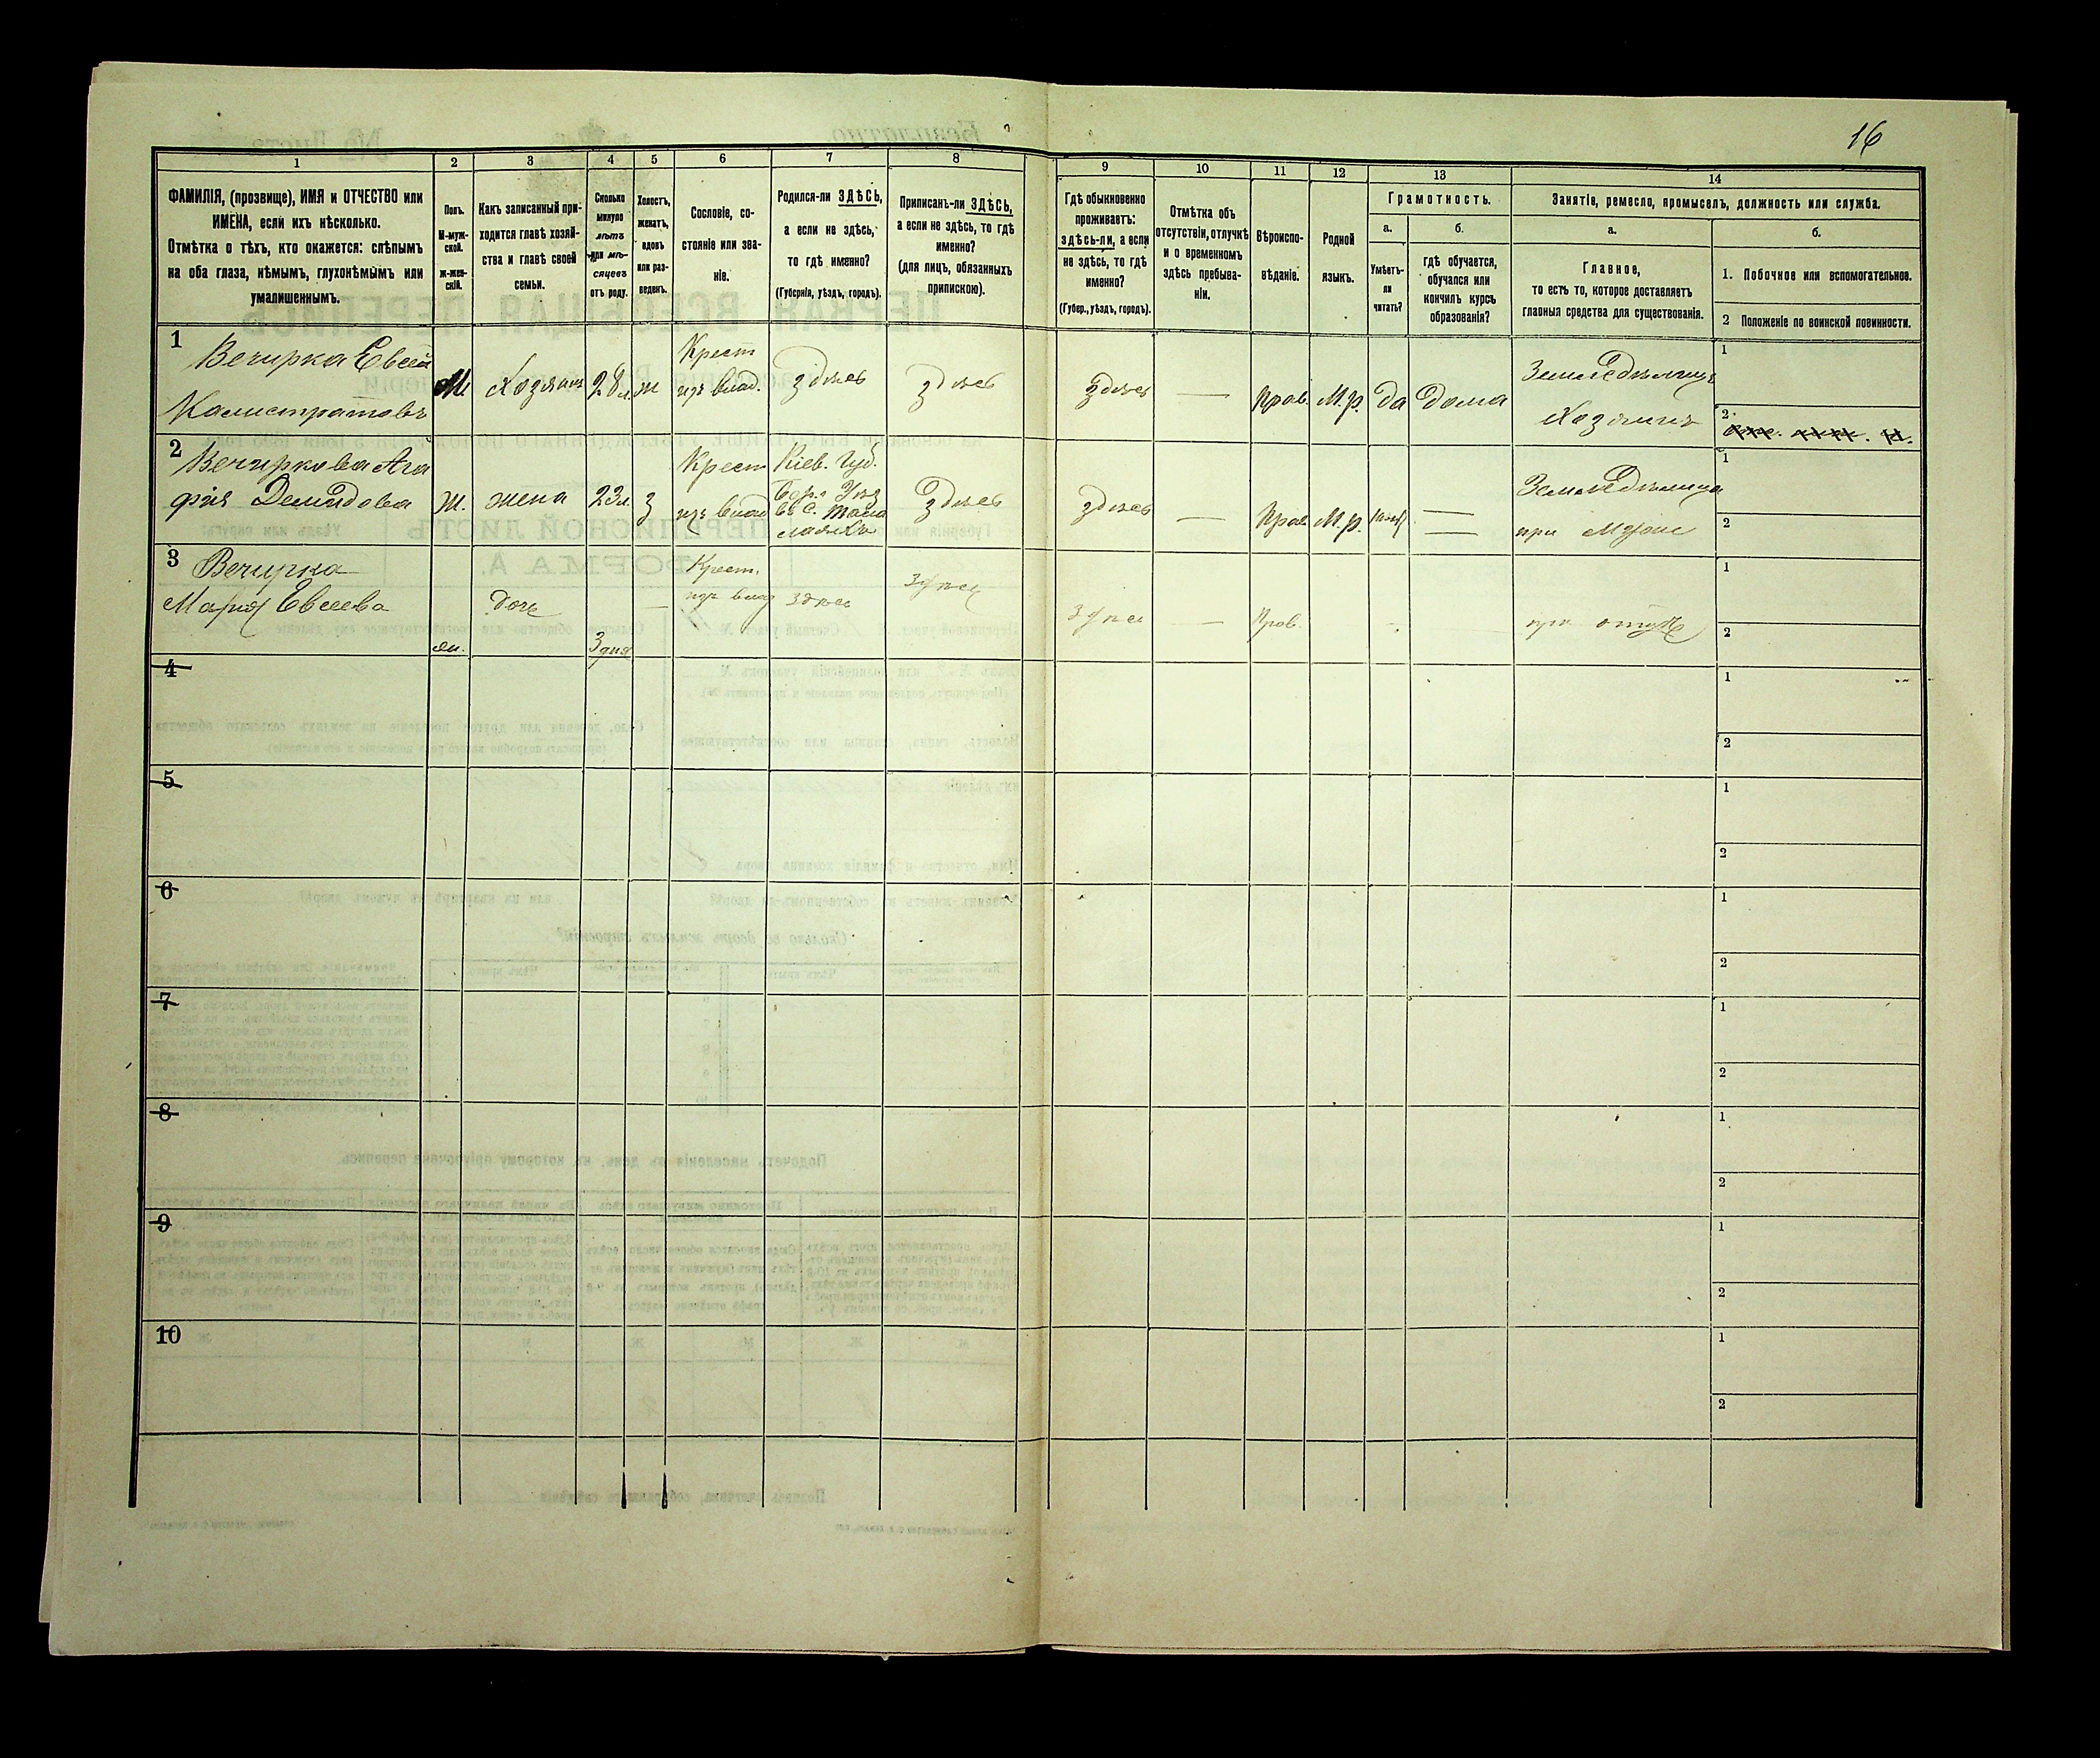 16
1
2
3
4
5
6
7
8
9
10
11
12
13
14
ФАМИЛІЯ, (прозвище), ИМЯ и ОТЧЕСТВО или
ИМЕНА, если ихъ нѣсколько.
Отмѣтка о тѣхъ, кто окажется: слѣпымъ
на оба глаза, нѣмымъ, глухонѣмымъ или
умалишеннымъ.
Полъ.
М-муж-
ской.
ж-жен-
скій.
Какъ записанный при-
ходится главѣ хозяй-
ства и главѣ своей
семьи.
Сколько
минуло
лѣтъ
или мѣ-
сяцевъ
отъ роду.
Холостъ,
женатъ,
вдовъ
или раз-
веденъ.
Сословіе, со-
стояніе или зва-
ніе.
Родился-ли ЗДѢСЬ,
а если не здѣсь,
то гдѣ именно?
(Губернія, уѣздъ, городъ).
Приписанъ-ли ЗДѢСЬ,
а если не здѣсь, то гдѣ
именно?
(для лицъ, обязанныхъ
припискою).
Гдѣ обыкновенно
проживаетъ:
здѣсь-ли, а если
не здѣсь, то гдѣ
именно?
(Губер., уѣздъ, городъ).
Отмѣтка объ
отсутствіи, отлучкѣ
и о временномъ
здѣсь пребыва-
ніи.
Вѣроиспо-
вѣданіе.
Родной
языкъ.
Грамотность.
а.
Умѣетъ-
ли
читать?
б.
гдѣ обучается,
обучался или
кончилъ курсъ
образованія?
Занятіе, ремесло, промыселъ, должность или служба.
а.
Главное,
то есть то, которое доставляетъ
главныя средства для существованія.
б.
1. Побочное или вспомогательное.
2 Положеніе по воинской повинности.
1
Вечирка Евсей
Калистратовъ
М
Хозяинъ
28 л.
ж
Крест
изъ влад.
здѣсь
здѣсь
здѣсь
—
Прав.
М.р.
да
дома
Земледѣлецъ
Хозяинъ
1
2
2
Вечиркова Ага
фія Демидова
ж.
жена
23 л.
з
Крест
изъ влад
Кіев. Губ.
здѣсь
здѣсь
—
Прав
М.р.
—
—
Земледѣлица
при мужѣ
1
2
3
Вечирка
Марія Евсеева
жн.
дочь
3 дня
—
Крест.
изъ влад
здѣсь
здѣсь
здѣсь
—
Прав.
при отцѣ
1
2
4
1
2
5
1
2
6
1
2
7
1
2
8
1
2
9
1
2
10
1
2